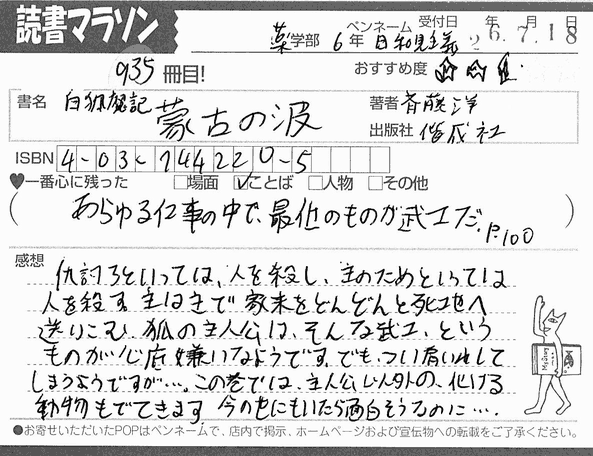 読書マラソン
935冊目!
薬学部 6年 ペンネーム 日和見主義 受付日 26年7月18日
おすすめ度
書名 白狐魔記 蒙古の波
著者 斉藤洋
出版社 偕成社
ISBN 4-03-744220-5
♥一番心に残った □場面 ☑ことば □人物 □その他
(あらゆる仕事の中で、最低のものが武士だ。P.100)
感想
仇討ちといっては、人を殺し、主のためといっては
人を殺す。主は主で家来をどんどんと死地へ
送りこむ。狐の主人公は、そんな武士、という
ものが心底嫌いなようです。でも、つい肩入れして
しまうようですが…。この巻では、主人公以外の、化ける
動物もでてきます。今の世にもいたら面白そうなのに…。
●お寄せいただいたPOPはペンネームで、店内で掲示、ホームページおよび宣伝物への転載をご了承ください。